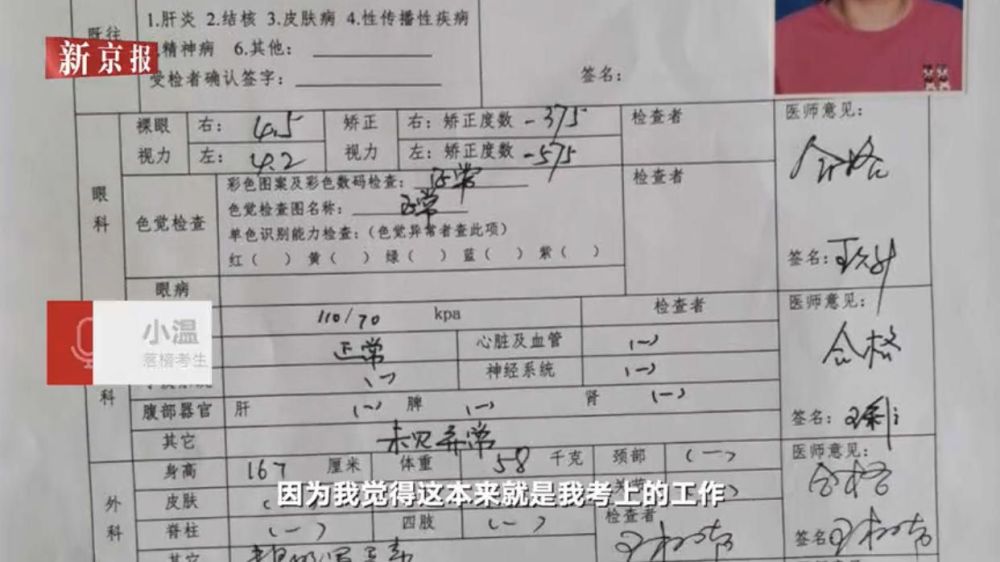 新京报
既往
1.肝炎 2.结核 3.皮肤病 4.性传播性疾病
精神病 6.其他：
受检者确认签字：
签名：
眼科
裸眼视力
右： 4.5
左： 4.2
矫正视力
右：矫正度数 -375
左：矫正度数 -575
检查者
医师意见：
合格
色觉检查
彩色图案及彩色数码检查： 正常
色觉检查图名称： 正常
单色识别能力检查：（色觉异常者查此项）
红（ ） 黄（ ） 绿（ ） 蓝（ ） 紫（ ）
检查者
签名：
眼病
小温
落榜考生
科
110/70 kpa
检查者
医师意见：
合格
正常
心脏及血管 (一)
(一)
神经系统 (一)
腹部器官 肝 (一) 脾 (一) 肾 (一)
签名：
其它 未见异常
外科
身高 167 厘米 体重 58 千克 颈部 (一)
医师意见：
合格
皮肤
因为我觉得这本来就是我考上的工作
脊柱 (一) 四肢 (一)
检查者
签名
其它